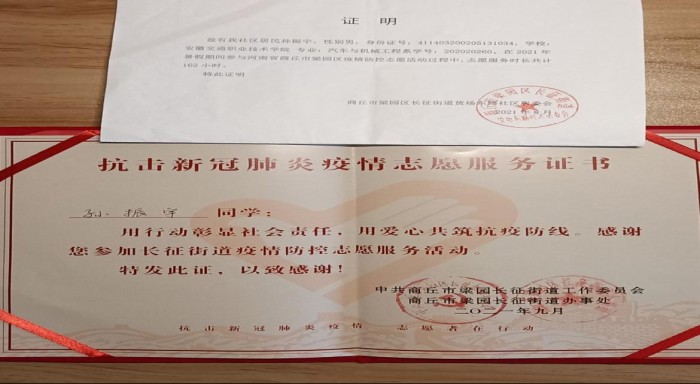 证 明
兹有我社区居民孙振宇，性别男，身份证号：411403200205131034，学校：
安徽交通职业技术学院 专业：汽车与机械工程系学号：202020260，在2021年
暑假期间参与河南省商丘市梁园区疫情防控志愿活动过程中，志愿服务时长共计
162小时。
特此证明
商丘市梁园区长征街道
2021年8月
抗击新冠肺炎疫情志愿服务证书
孙振宇 同学：
用行动彰显社会责任，用爱心共筑抗疫防线。感谢
您参加长征街道疫情防控志愿服务活动。
特发此证，以致感谢！
中共商丘市梁园长征街道工作委员会
商丘市梁园长征街道办事处
二〇二一年九月
抗击新冠肺炎疫情 志愿者在行动